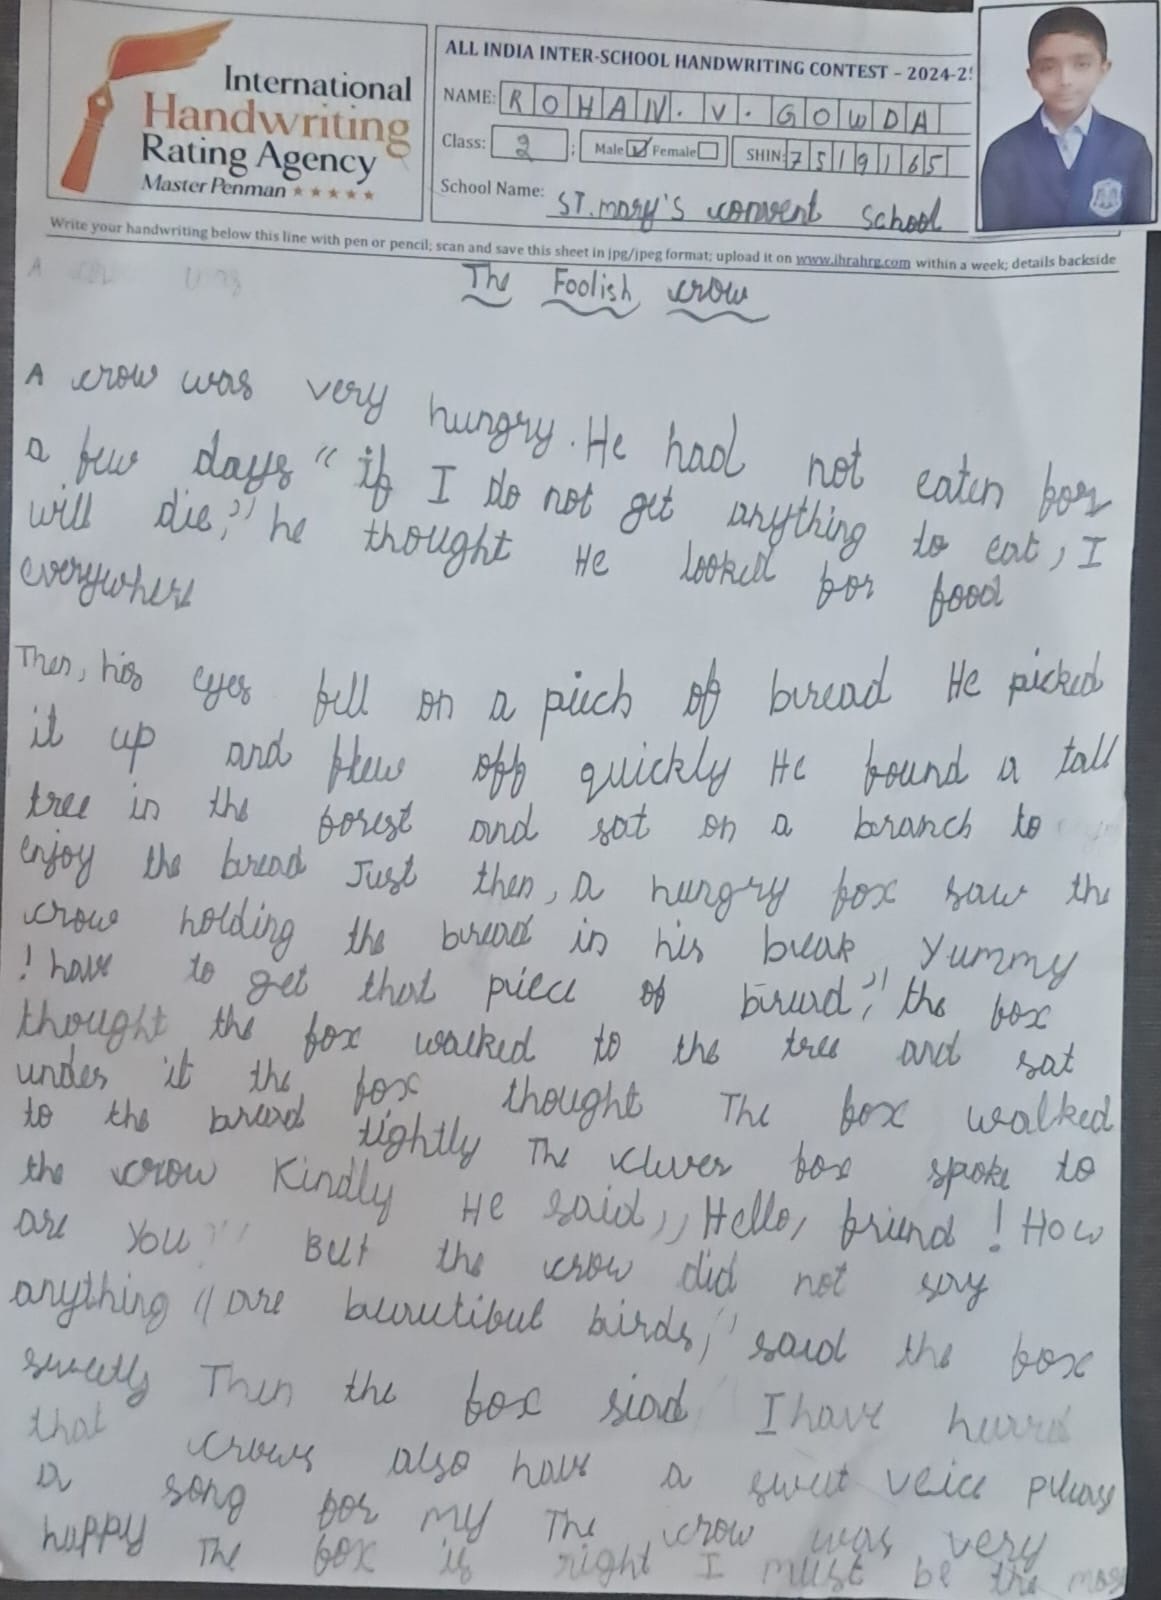 International
Handwriting
Rating Agency
Master Penman ★★★★★
ALL INDIA INTER-SCHOOL HANDWRITING CONTEST - 2024-25
NAME: ROHAN. V. GOWDA
Class: 2 ; Male ☑ Female ☐ SHIN: 7519165
School Name: ST. mary's convent school
Write your handwriting below this line with pen or pencil; scan and save this sheet in jpg/jpeg format; upload it on www.ihrahrg.com within a week; details backside
The Foolish crow
A crow was very hungry. He had not eaten for
a few days "if I do not get anything to eat, I
will die," he thought He looked for food
everywhere
Then, his eyes fell on a piech of bread He picked
it up and flew off quickly He found a tall
tree in the forest and sat on a branch to
enjoy the bread Just then, a hungry fox saw the
crow holding the bread in his beak Yummy
! have to get that piece of bread," the fox
thought the fox walked to the tree and sat
under it the fox thought The fox walked
to the bread tightly The clever fox spoke to
the crow Kindly He said,, Hello, friend ! How
are you" But the crow did not say
anything "are beautiful birds," said the fox
sweetly Then the fox siad I have heard
that crows also have a sweet veice please
a song for my The crow was very
happy The fox is right I must be the mos